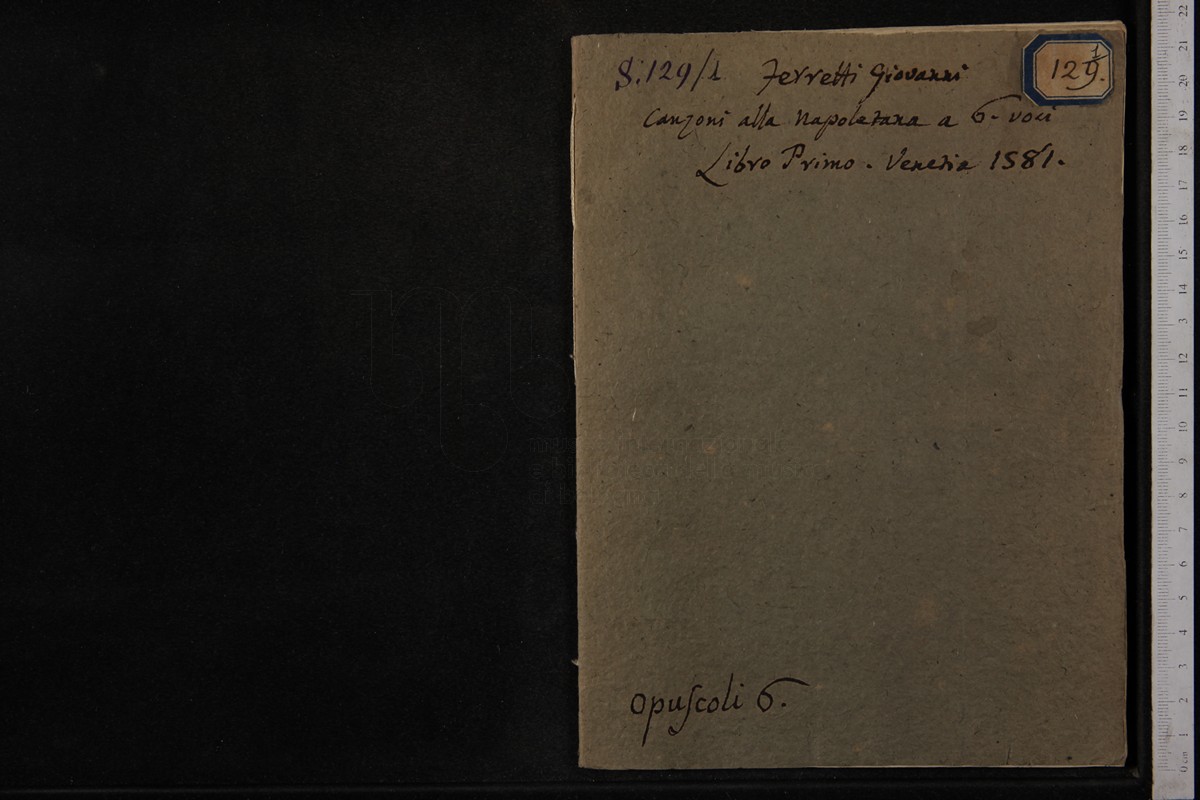 S.129/1 Ferretti Giovanni
129. 1
Canzoni alla Napoletana a 6. voci
Libro Primo. Venezia 1581.
Opuscoli 6.
22
21
20
19
18
17
16
15
14
3
12
11
10
9
8
7
6
5
4
3
2
1
0 cm